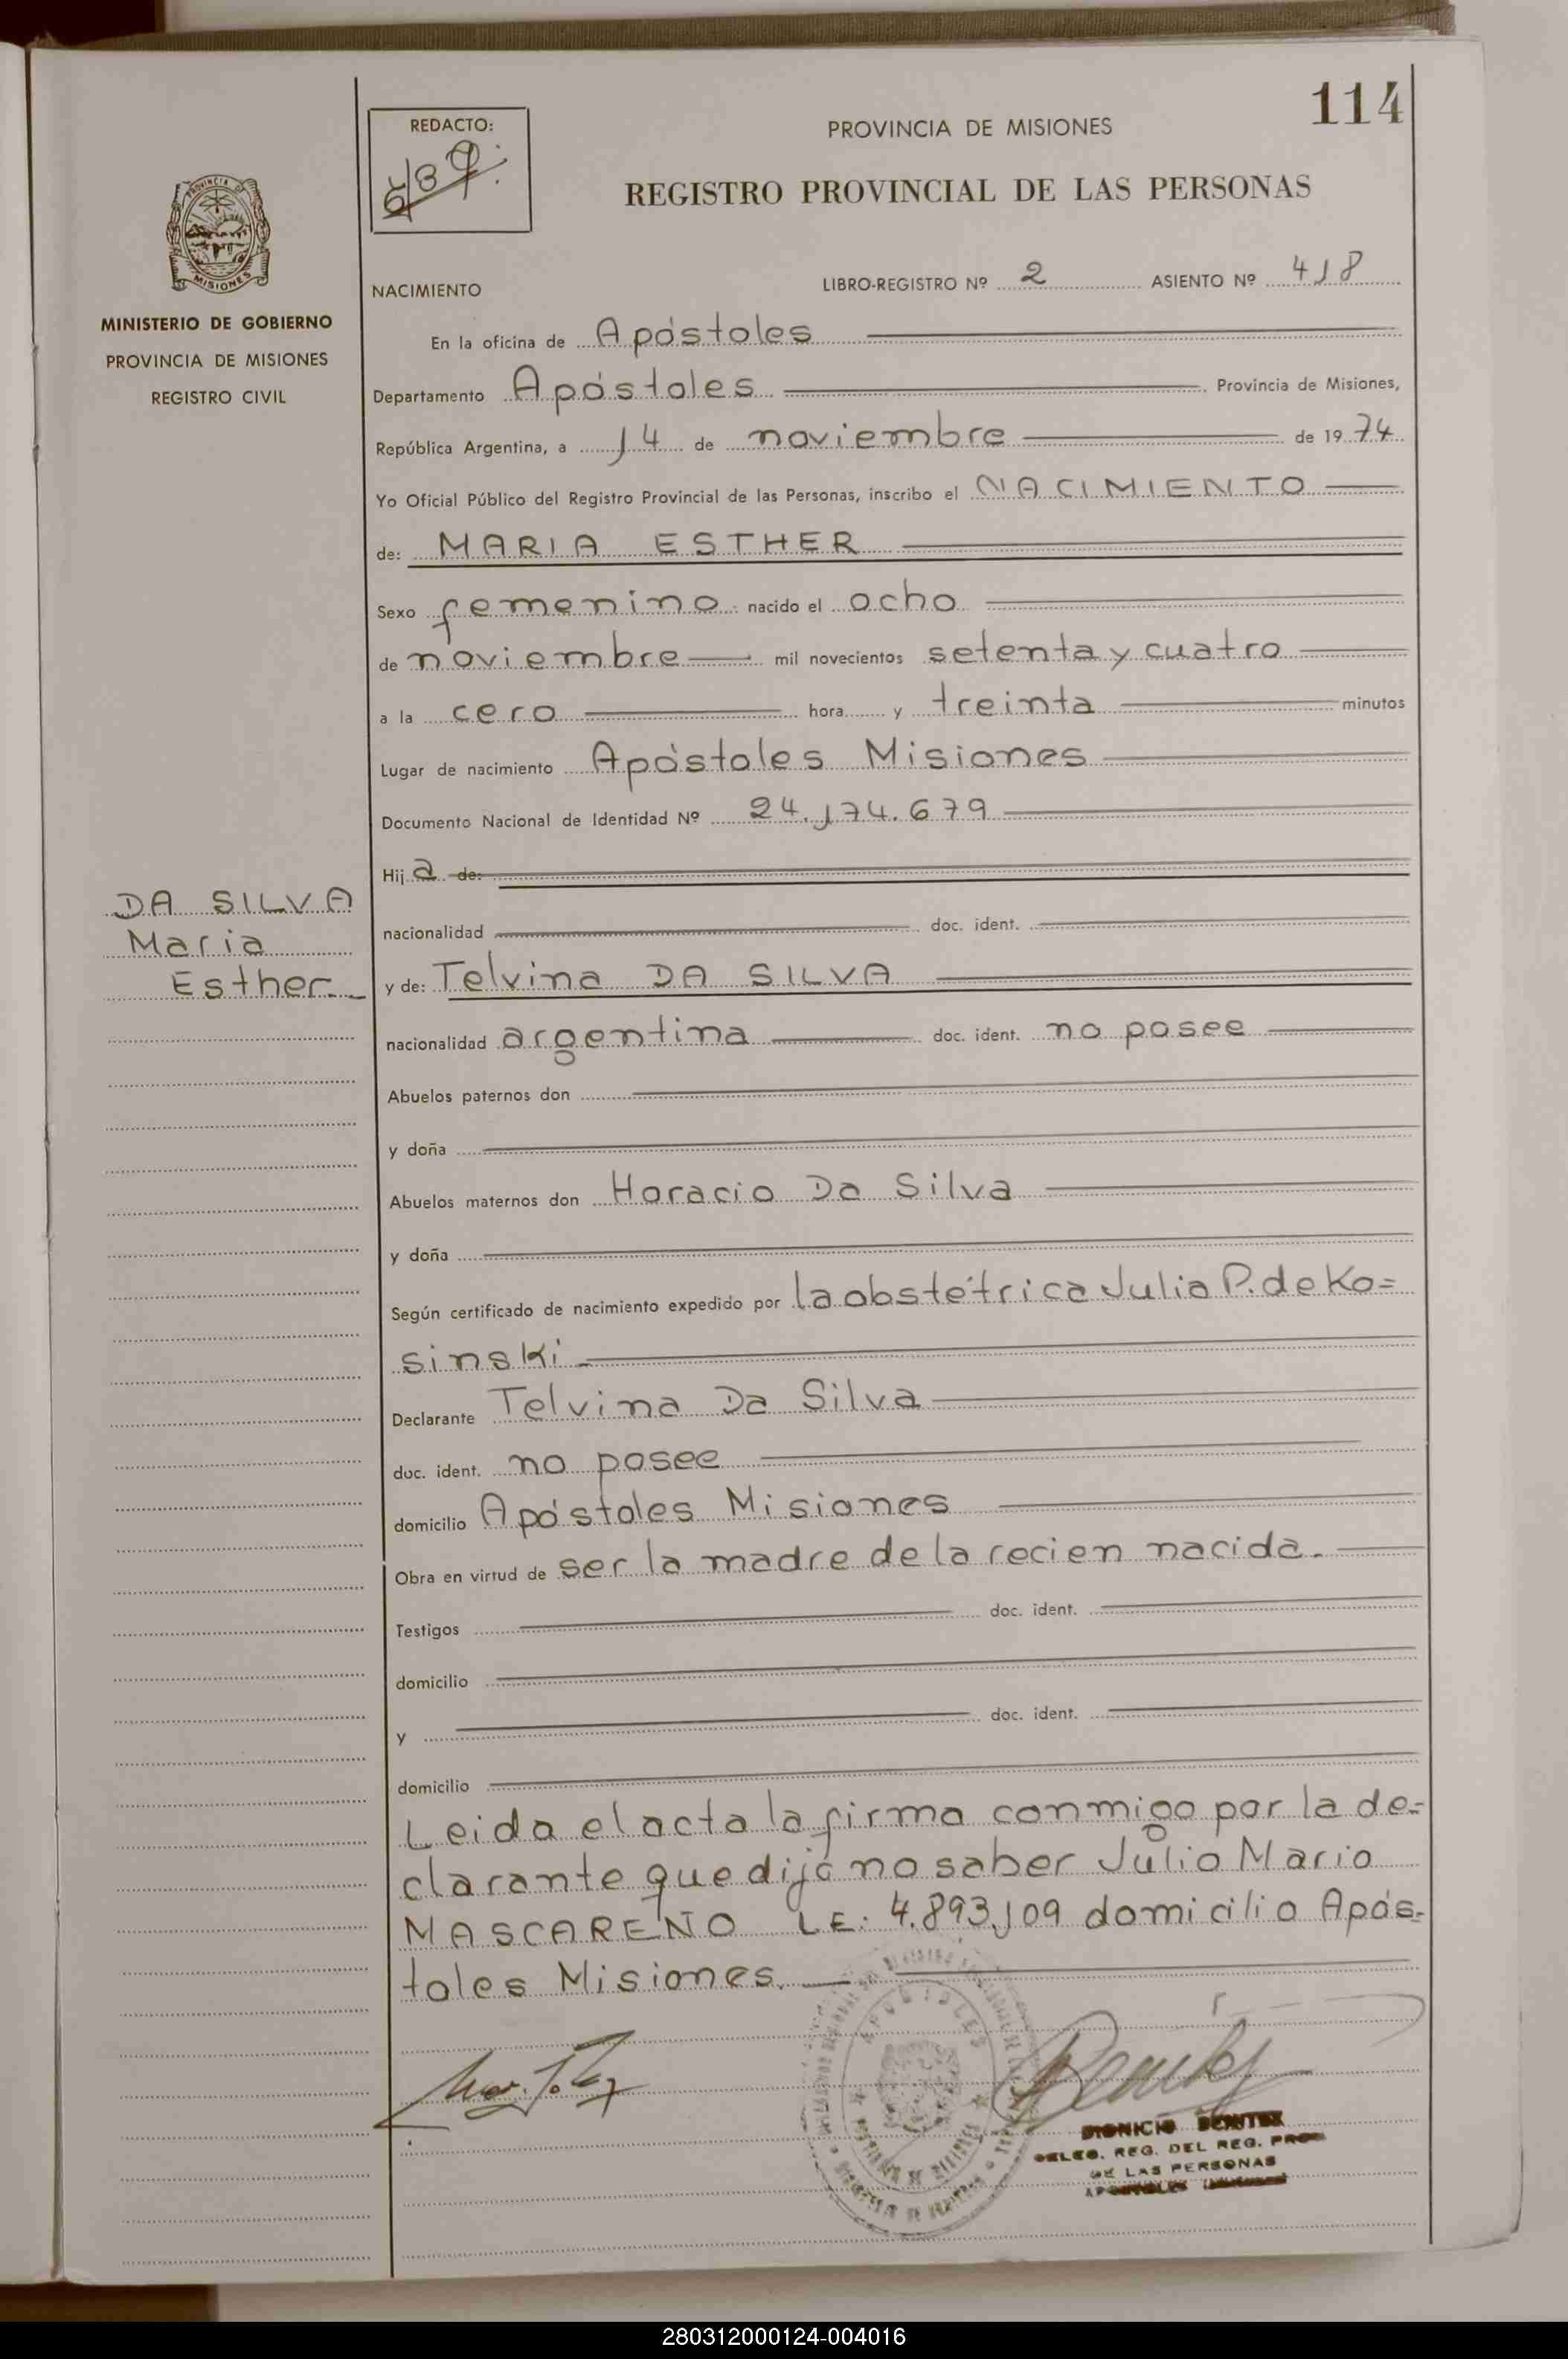 114
REDACTO:
PROVINCIA DE MISIONES
REGISTRO PROVINCIAL DE LAS PERSONAS
MISIONES
MINISTERIO DE GOBIERNO
PROVINCIA DE MISIONES
REGISTRO CIVIL
NACIMIENTO LIBRO-REGISTRO Nº 2 ASIENTO Nº 418
En la oficina de Apóstoles
Departamento Apóstoles Provincia de Misiones,
República Argentina, a 14 de noviembre de 1974
Yo Oficial Público del Registro Provincial de las Personas, inscribo el NACIMIENTO
de: MARIA ESTHER
Sexo femenino nacido el ocho
de noviembre mil novecientos setenta y cuatro
a la cero hora y treinta minutos
Lugar de nacimiento Apóstoles Misiones
Documento Nacional de Identidad Nº 24.174.679
Hija de:
DA SILVA
Maria
Esther.
nacionalidad doc. ident.
y de: Telvina DA SILVA
nacionalidad argentina doc. ident. no posee
Abuelos paternos don
y doña
Abuelos maternos don Horacio Da Silva
y doña
Según certificado de nacimiento expedido por la obstétrica Julia P. de Ko=
sinski
Declarante Telvina Da Silva
doc. ident. no posee
domicilio Apóstoles Misiones
Obra en virtud de ser la madre de la recien nacida.
Testigos doc. ident.
domicilio
y doc. ident.
domicilio
Leida el acta la firma conmigo por la de=
clarante que dijo no saber Julio Mario
MASCAREÑO LE: 4.893.109 domicilio Após=
toles Misiones.
DIONICIO BENITEZ
DELEG. REG. DEL REG. PROV.
DE LAS PERSONAS
280312000124-004016